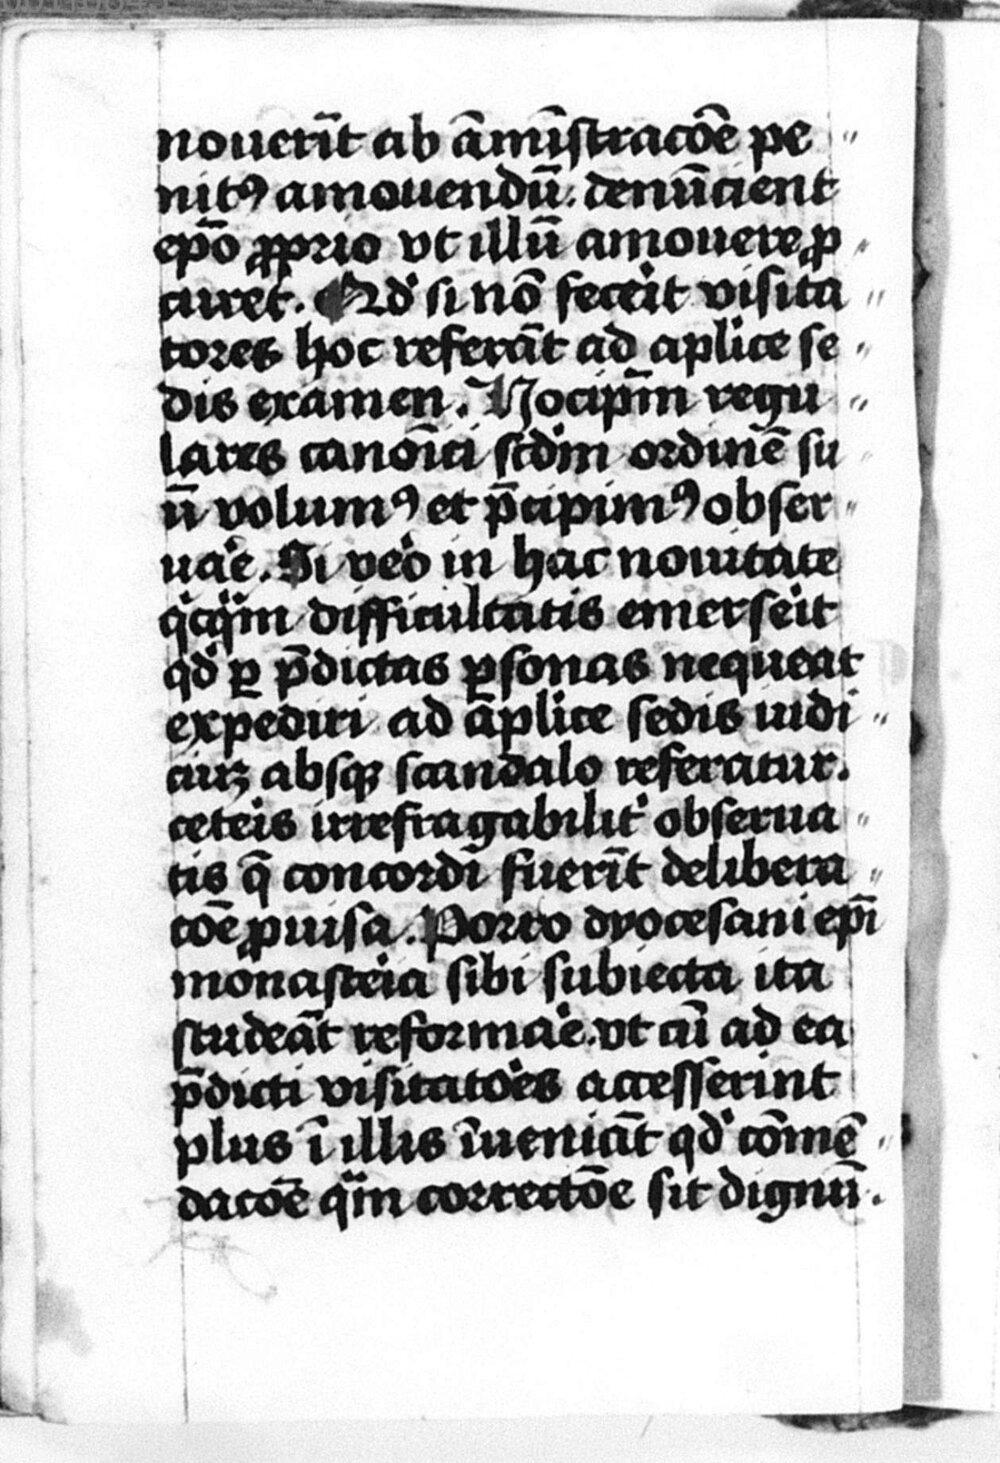 nouerīt ab āmīstracōe pe〃
nitꝰ amouendū. denūcient
ep̄o ꝓprio vt illū amouere ꝓ〃
curet. Qd' si nō fecēit visita〃
tores hoc referāt ad aplice se〃
dis examen. Hocip̄m regu〃
lares canoīci scd'm ordinē su〃
ū volumꝰ et p̄cipimꝰ obser〃
uae̓. Si veo̓ in hac nouitate
qͥcqͣm difficultatis emerse̓it
qd' ꝑ p̄dictas ꝑsonas nequeat
expediri ad āplice sedis iudi〃
ciuꝫ absqꝫ scandalo referatur.
cete̓is irrefragabilit' obserua〃
tis q̄ concordi fuerīt delibera〃
cōe ꝓuisa. Porro dyocesani ep̄i
monaste̓ia sibi subiecta ita
studeāt reformae̓. vt cū ad ea
p̄dicti visitato̓es accesserint
plus ī illis īueniāt qd' cōmē〃
dacōe qͣm correctōe sit dignū.